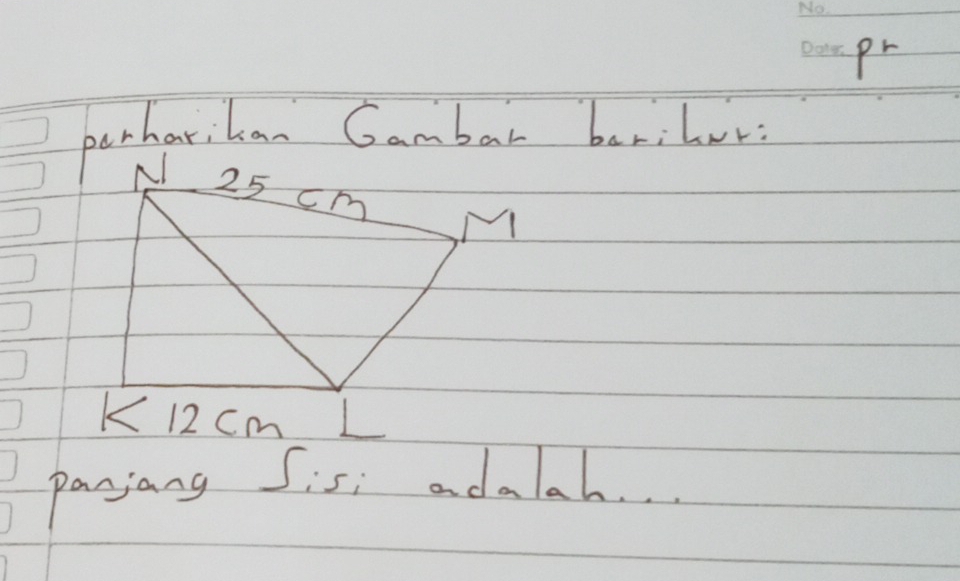 No.
Date: pr
perharikan Gambar berikur:
N 25 cm M
K 12 cm L
panjang Sisi adalah...